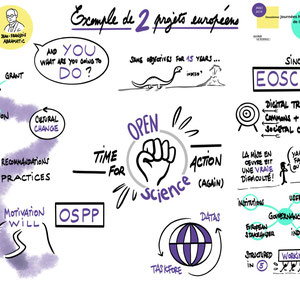 Exemple de 2 projets européens
JEAN-FRANÇOIS
ABRAMATIC
AND YOU
WHAT ARE YOU GOING TO
DO?
GRANT
SANS OBJECTIFS FOR 15 YEARS...
SINC
EOSC
CHANGE
OPEN
SCIENCE
TIME
FOR
ACTION
(AGAIN)
DIGITAL TR
COMMONS +
SOCIETAL C
LA MISE EN
ŒUVRE EST
UNE VRAIE
DIFFICULTÉ!
RECOMMANDATIONS
PRACTICES
MOTIVATION
WILL
OSPP
DATAS
TASKFORE
INSTITUTION
USE
GOUVERNA
EUROPEAN
STAKEHOLDER
IND
STRUCTURED
IN 5
WORKI